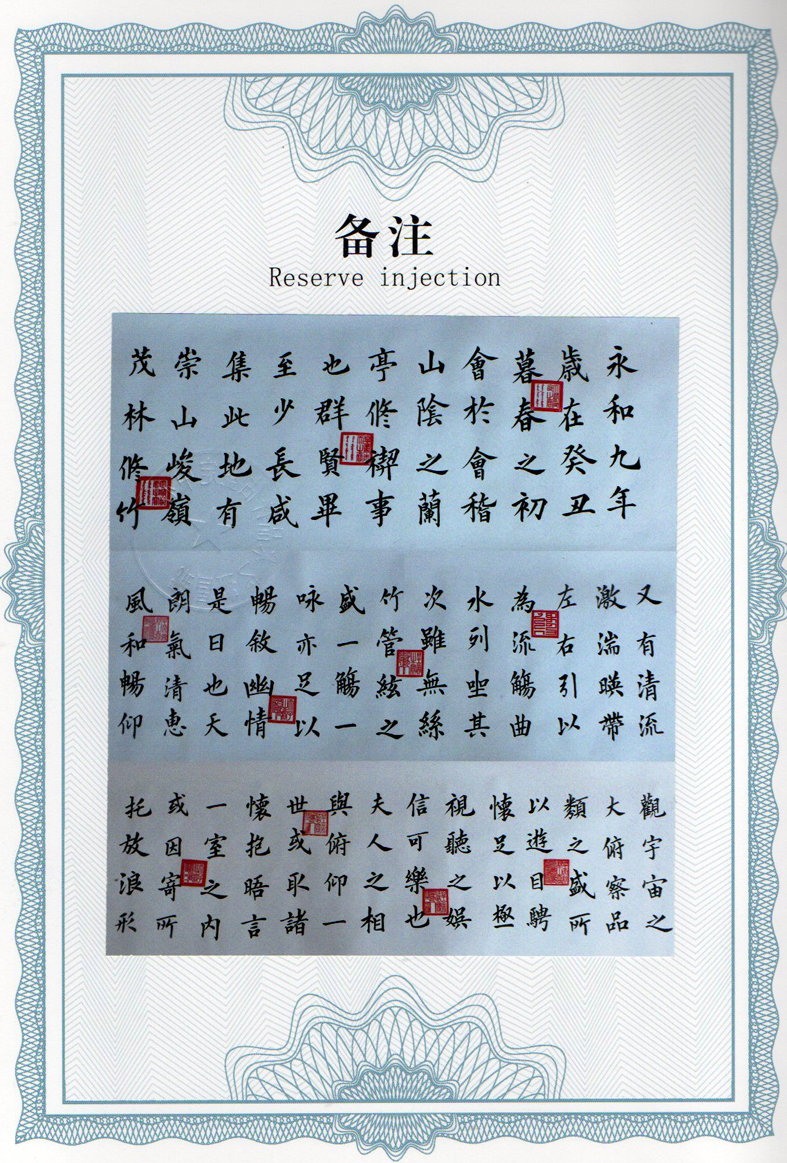 备注
Reserve injection
永和九年
歲在癸丑
暮春之初
會於會稽
山陰之蘭
亭修禊事
也群賢畢
至少長咸
集此地有
崇山峻嶺
茂林修竹
又有清流
激湍暎帶
左右引以
為流觴曲
水列坐其
次雖無絲
竹管絃之
盛一觴一
咏亦足以
暢敘幽情
是日也天
朗氣清恵
風和暢仰
觀宇宙之
大俯察品
類之盛所
以遊目騁
懷足以極
視聽之娛
信可樂也
夫人之相
與俯仰一
世或取諸
懷抱晤言
一室之内
或因寄所
托放浪形